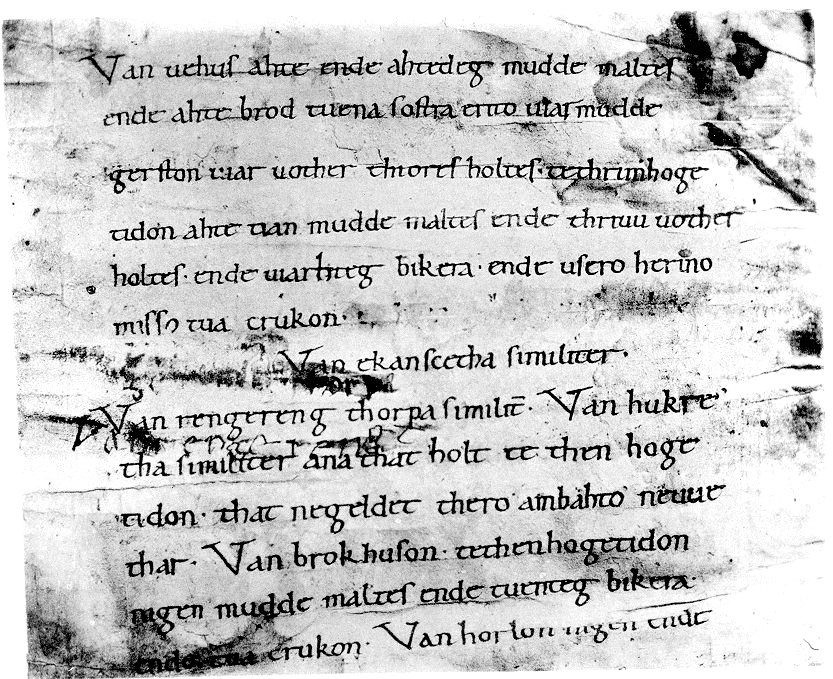 Van uehuſ ahte ende ahtedeg mudde malteſ
ende ahte brod tuena ſoſtra erito uiar mudde
gerſton uiar uother thioreſ holteſ· tethrimhoge
tidon ahte tian mudde malteſ ende thriuu uother
holteſ· ende uiarhteg bikera· ende uſero herino
miſſo tua crukon·
Van ekanſcetha ſimiliter·
Van rengereng thorpa ſimilit̄· Van hukre
tha ſimiliter ana that holt te then hoge
tidon· that negeldet thero ambahto neuue
thar· Van brokhuſon· tethenhogetidon
nigen mudde malteſ ende tuenteg bikera·
ende tua crukon· Van horlon nigen ende